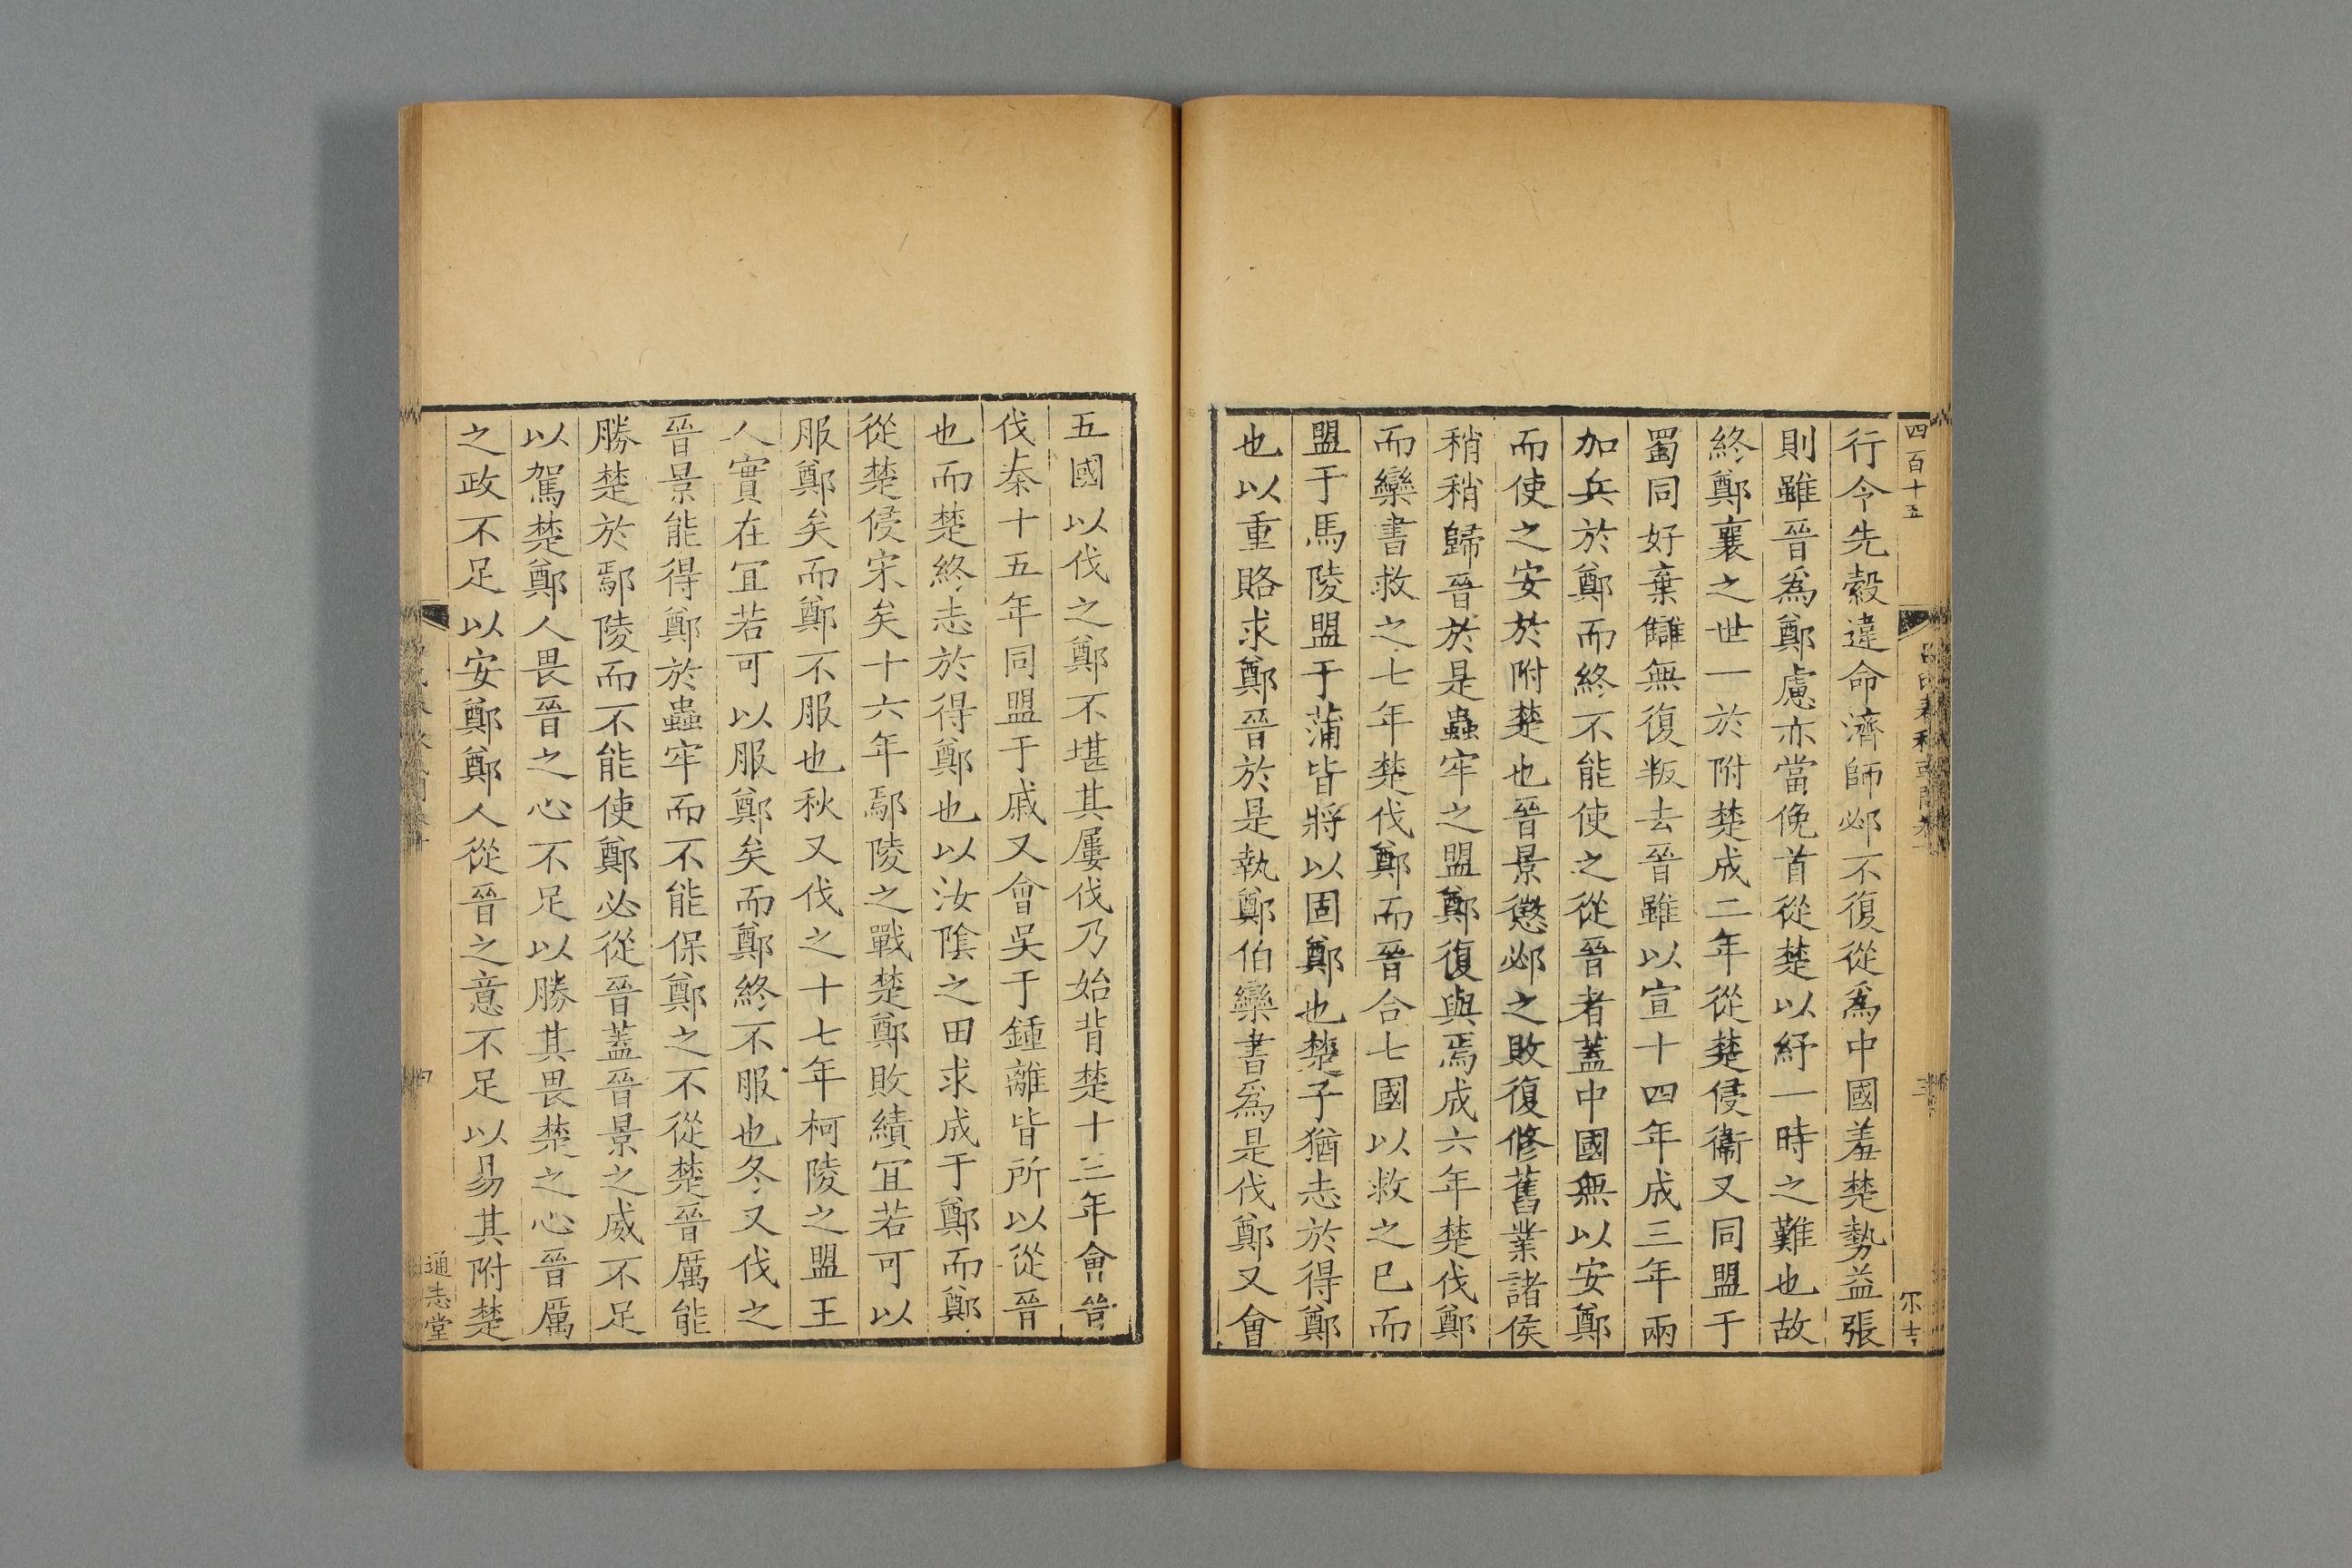 四百十五
行令先縠違命濟師邲不復從爲中國羞楚勢益張
則雖晉爲鄭慮亦當俛首從楚以紓一時之難也故
終鄭襄之世一於附楚成二年從楚侵衞又同盟于
蜀同好棄讎無復叛去晉雖以宣十四年成三年兩
加兵於鄭而終不能使之從晉者蓋中國無以安鄭
而使之安於附楚也晉景懲邲之敗復修舊業諸侯
稍稍歸晉於是蟲牢之盟鄭復與焉成六年楚伐鄭
而欒書救之七年楚伐鄭而晉合七國以救之已而
盟于馬陵盟于蒲皆將以固鄭也楚子猶志於得鄭
也以重賂求鄭晉於是執鄭伯欒書爲是伐鄭又會
五國以伐之鄭不堪其屢伐乃始背楚十三年會晉
伐秦十五年同盟于戚又會吳于鍾離皆所以從晉
也而楚終志於得鄭也以汝陰之田求成于鄭而鄭
從楚侵宋矣十六年鄢陵之戰楚鄭敗績宜若可以
服鄭矣而鄭不服也秋又伐之十七年柯陵之盟王
人實在宜若可以服鄭矣而鄭終不服也冬又伐之
晉景能得鄭於蟲牢而不能保鄭之不從楚晉厲能
勝楚於鄢陵而不能使鄭必從晉蓋晉景之威不足
以駕楚鄭人畏晉之心不足以勝其畏楚之心晉厲
之政不足以安鄭鄭人從晉之意不足以易其附楚
通志堂